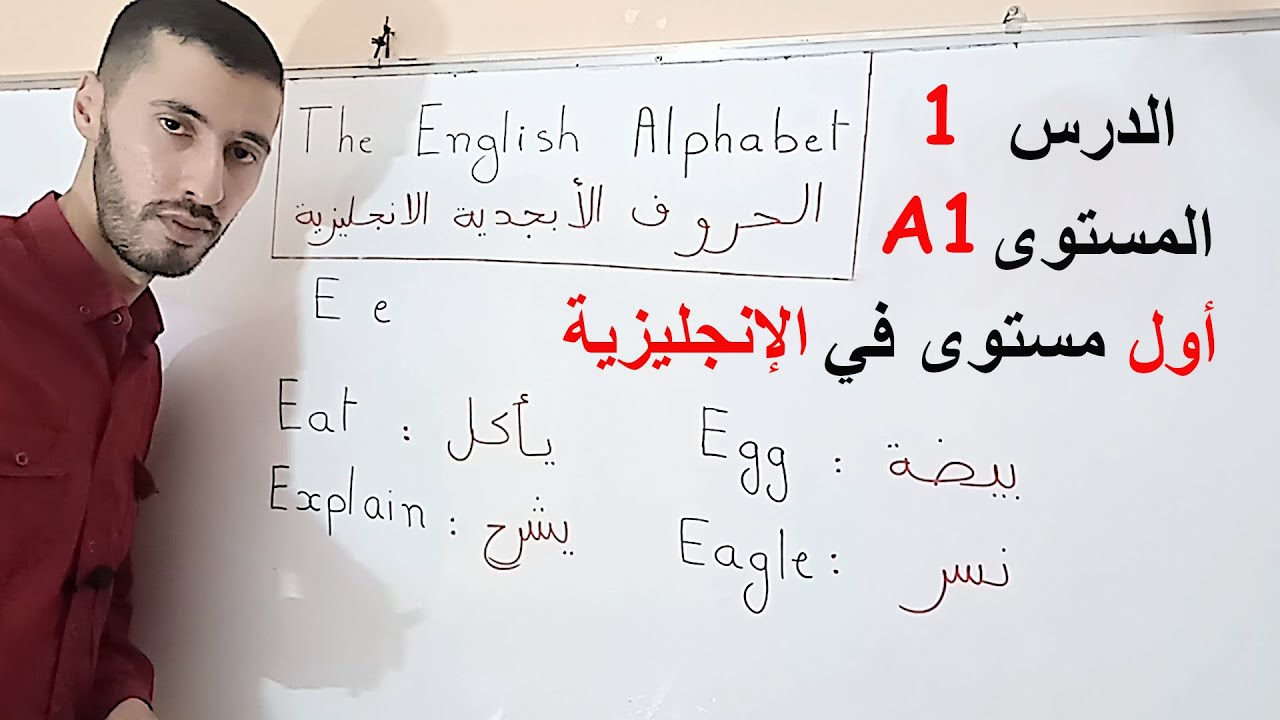 The English Alphabet
الحروف الأبجدية الانجليزية
الدرس 1
المستوى A1
أول مستوى في الإنجليزية
E e
Eat : يأكل
Egg : بيضة
Explain : يشرح
Eagle : نسر